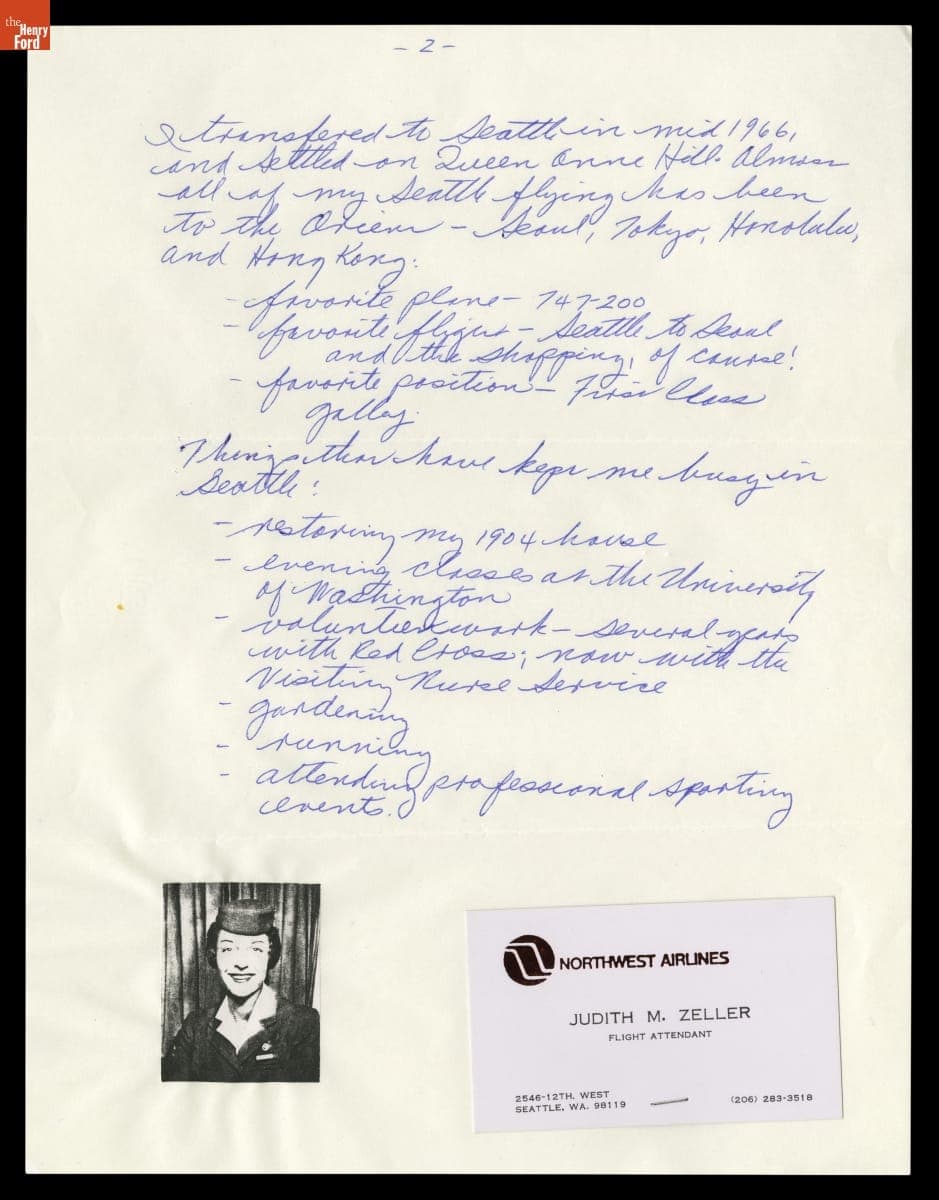 the
Henry
Ford
- 2 -
I transfered to Seattle in mid 1966,
and settled on Queen Anne Hill. Almost
all of my Seattle flying has been
to the Orient - Seoul, Tokyo, Honolulu,
and Hong Kong.
- favorite plane - 747-200
- favorite flight - Seattle to Seoul
and the shopping, of course!
- favorite position - First Class
galley.
Things that have kept me busy in
Seattle:
- restoring my 1904 house
- evening classes at the University
of Washington
- volunteer work - several years
with Red Cross; now with the
Visiting Nurse Service
- gardening
- running
- attending professional sporting
events.
NORTHWEST AIRLINES
JUDITH M. ZELLER
FLIGHT ATTENDANT
2546-12TH. WEST
SEATTLE, WA. 98119
(206) 283-3518